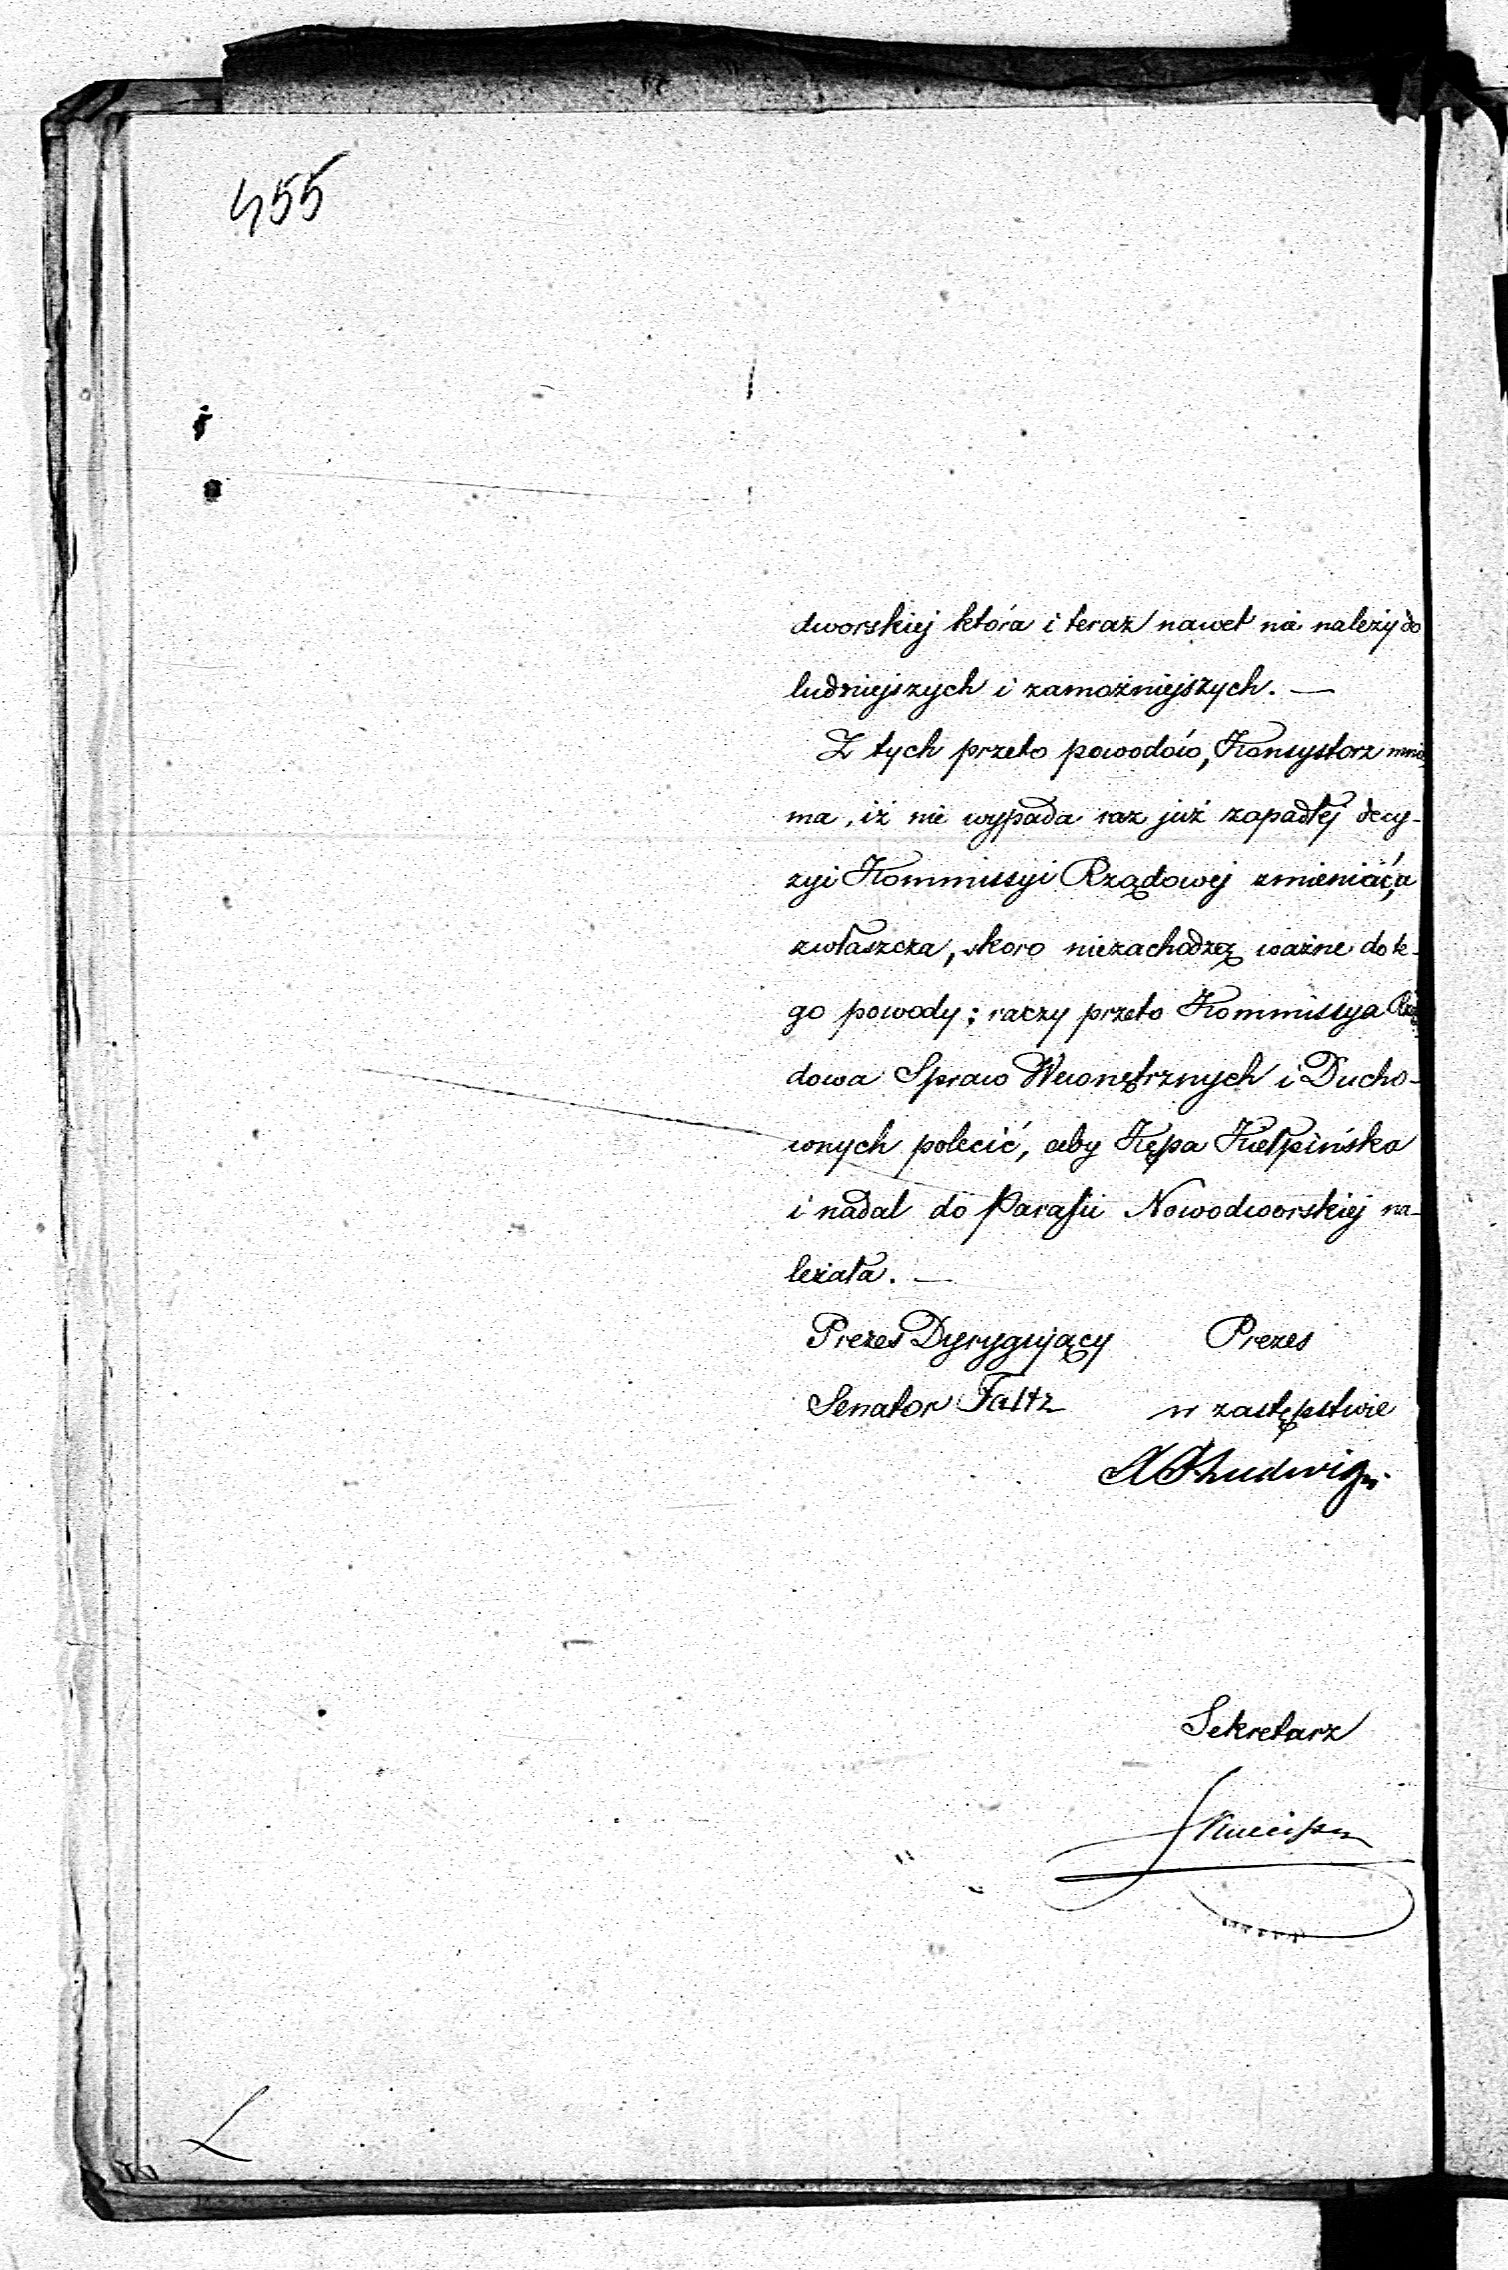 455
dworskiej która i teraz nawet nie należy do
ludniejszych i zamożniejszych. —
Z tych przeto powodów, Konsystorz mnie
ma, iż nie wypada raz już zapadłej decy-
zyi Kommissyi Rządowej zmieniać, a
zwłaszcza, skoro niezachodzą ważne do te-
go powody; raczy przeto Kommissya Rzą
dowa Spraw Wewnętrznych i Ducho-
wnych polecić, aby Kępa Kiełpińska
i nadal do Parafii Nowodworskiej na-
leżała. —
Prezes Dyrygujący Prezes
Senator Faltz w zastępstwie
Ludwig
Sekretarz
L